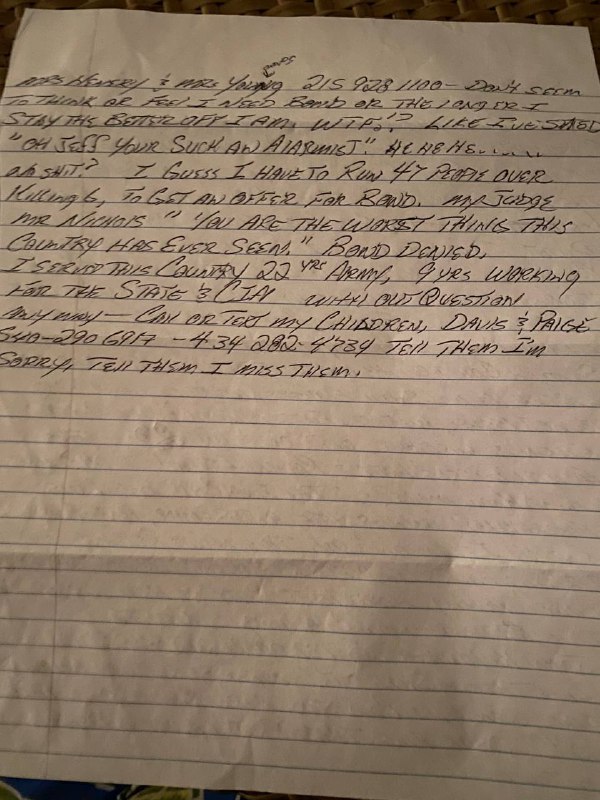 HENERY & MRS YOUNG 215 928 1100 - DON'T SEEM
TO THINK OR FEEL I NEED BOND OR THE LONGER I
STAY THE BETTER OFF I AM. WTF!? LIKE I'VE
"OH JESS YOUR SUCH AN ALARMIST." HE HE HE......
SHIT? I GUESS I HAVE TO RUN 47 PEOPLE OVER
KILLING 6, TO GET AN OFFER FOR BOND. MY JUDGE
MR NICHOLS "YOU ARE THE WORST THING THIS
COUNTRY HAS EVER SEEN." BOND DENIED.
I SERVED THIS COUNTRY 22 YRS ARMY, 9 YRS WORKING
FOR THE STATE & CIA WITH OUT QUESTION
ANY WAY - CALL OR TEXT MY CHILDREN, DAVIS & PAIGE
540-290 6917 - 434 282-4734 TELL THEM I'M
SORRY, TELL THEM I MISS THEM.